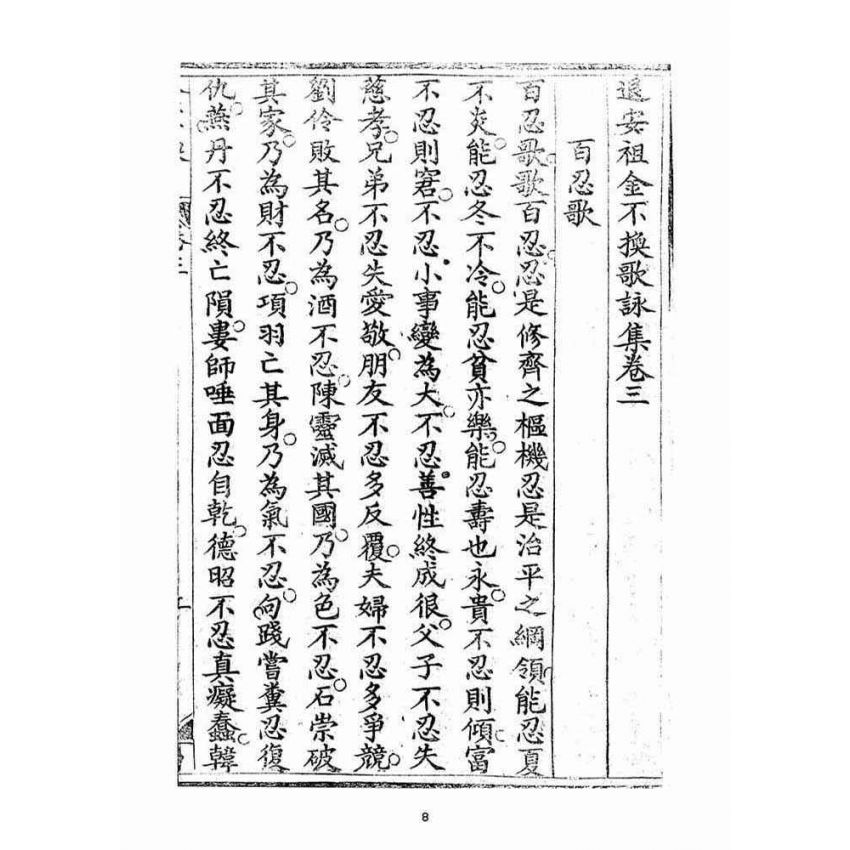 退安祖金不換歌詠集卷三
百忍歌
百忍歌歌百忍忍是修齊之樞機忍是治平之綱領能忍夏
不炎能忍冬不冷能忍貧亦樂能忍壽也永貴不忍則傾富
不忍則窘不忍小事變為大不忍善性終成很父子不忍失
慈孝兄弟不忍失愛敬朋友不忍多反覆夫婦不忍多爭競
劉伶敗其名乃為酒不忍陳靈滅其國乃為色不忍石崇破
其家乃為財不忍項羽亡其身乃為氣不忍句踐嘗糞忍復
仇燕丹不忍終亡隕婁師唾面忍自乾德昭不忍真癡蠢韓
8